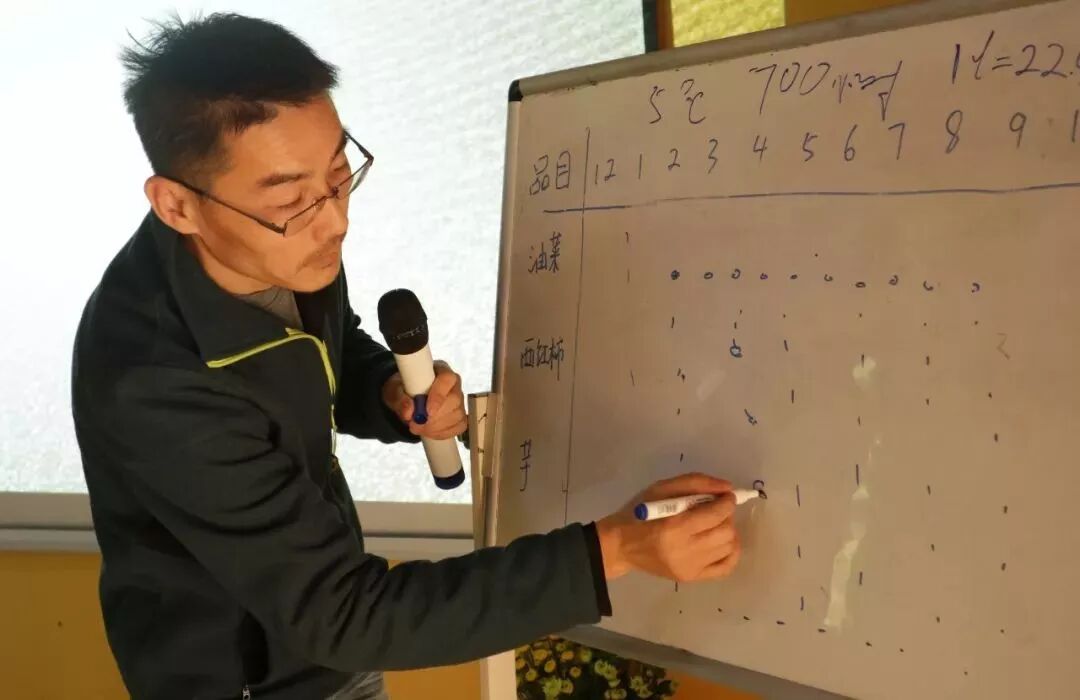 5℃ 700小时 14=22.
品目 12 1 2 3 4 5 6 7 8 9 1
油菜
西红柿
芋